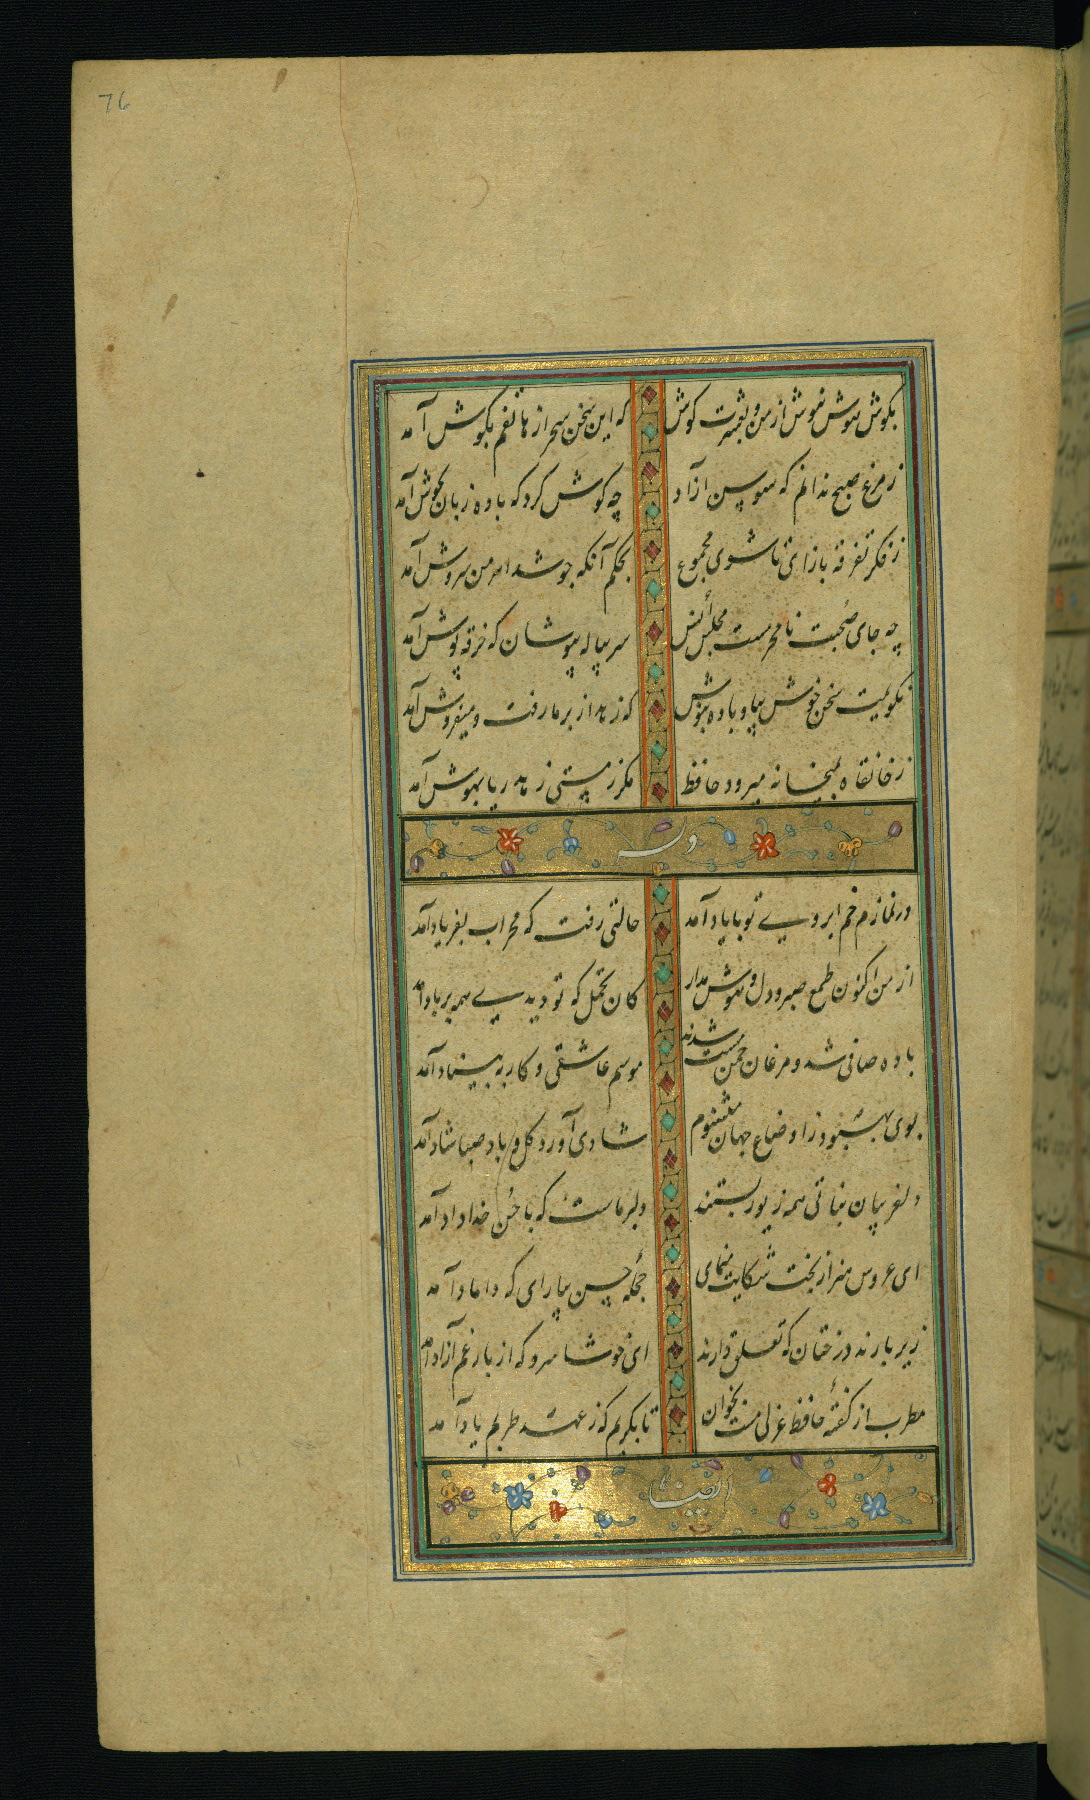 76
بگوش هوش نیوش از من و بعشرت کوش که این سخن سحر از هاتفم بگوش آمد
ز مرغ صبح ندانم که سوسن آزاد چه گوش کرد که با ده زبان خموش آمد
ز فکر تفرقه بازای تا شوی مجموع بحکم آنکه چو شد اهرمن سروش آمد
چه جای صُحبت نامحرمست مجلس اُنس سر پیاله بپوشان که خرقه پوش آمد
نکو سخن خوش بیا و باده بنوش که زاهد از بر ما رفت و میفروش آمد
ز خانقاه بمیخانه میرود حافظ مگر ز مستی زهد ریا بهوش آمد
وله
در نمازم خم ابروی تو با یاد آمد حالتی رفت که محراب بفریاد آمد
از من اکنون طمع صبر و دل و هوش مدار کان تحمل که تو دیدی همه بر باد آمد
باده صافی شد و مرغان چمن مست شدند موسم عاشقی و کار به بنیاد آمد
بوی بهبود ز اوضاع جهان میشنوم شادی آورد گل و باد صبا شاد آمد
دلفریبان نباتی همه زیور بستند دلبر ماست که با حُسن خداداد آمد
ای عروس هنر از بخت شکایت منمای حجله حسن بیارای که داماد آمد
زیر بارند درختان که تعلق دارند ای خوشا سرو که از بار غم آزاد آمد
مطرب از گفتهٔ حافظ غزلی مست بخوان تا بگریم که ز عهد طربم یاد آمد
ایضا